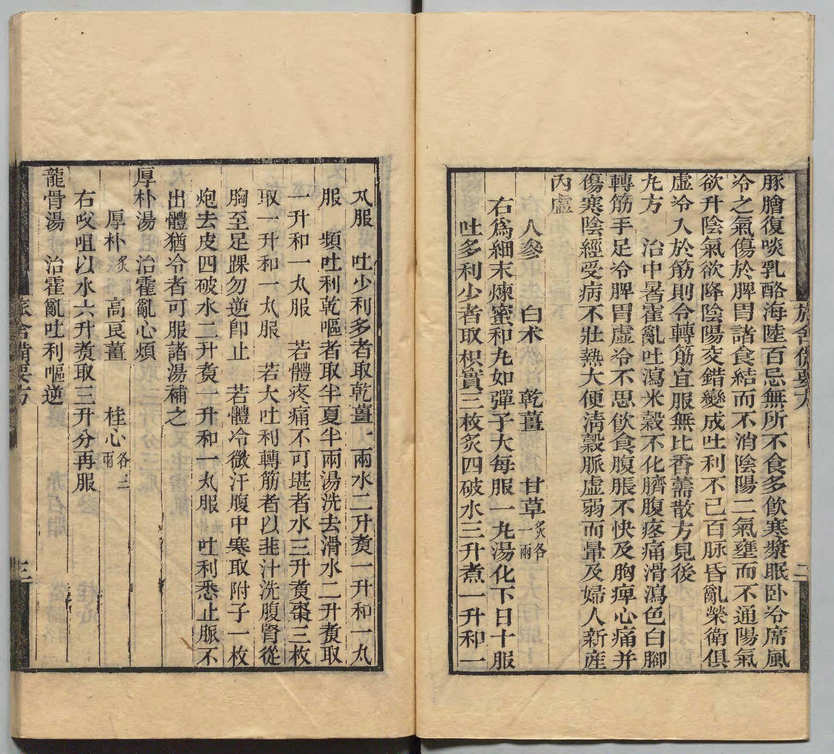 豚膾復啖乳酪海陸百忌無所不食多飲寒漿眠卧冷席風
冷之氣傷於脾胃諸食結而不消陰陽二氣壅而不通陽氣
欲升陰氣欲降陰陽交錯變成吐利不已百脉昏亂榮衛俱
虚冷入於筋則令轉筋宜服無比香薷散方見後
九方 治中暑霍亂吐瀉米穀不化臍腹疼痛滑瀉色白脚
轉筋手足冷脾胃虚冷不思飲食腹脹不快及胸痺心痛并
傷寒陰經受病不壯熱大便清穀脈虚弱而暈及婦人新産
内虚
人參 白术 乾薑 甘草炙各一兩
右為細末煉蜜和丸如彈子大每服一丸湯化下日十服
吐多利少者取枳實三枚炙四破水三升煮一升和一
丸服 吐少利多者取乾薑一兩水二升煑一升和一丸
服 頻吐利乾嘔者取半夏半兩湯洗去滑水二升煑取
一升和一丸服 若體疼痛不可堪者水三升煑棗三枚
取一升和一丸服 若大吐利轉筋者以韭汁洗腹腎從
胸至足踝勿逆卽止 若體冷微汗腹中寒取附子一枚
炮去皮四破水二升煑一升和一丸服 吐利悉止脈不
出體猶冷者可服諸湯補之
厚朴湯 治霍亂心煩
厚朴炙 高良薑 桂心各三兩
右㕮咀以水六升煑取三升分再服
龍骨湯 治霍亂吐利嘔逆
旅舍備要方
三
旅舍備要方
二